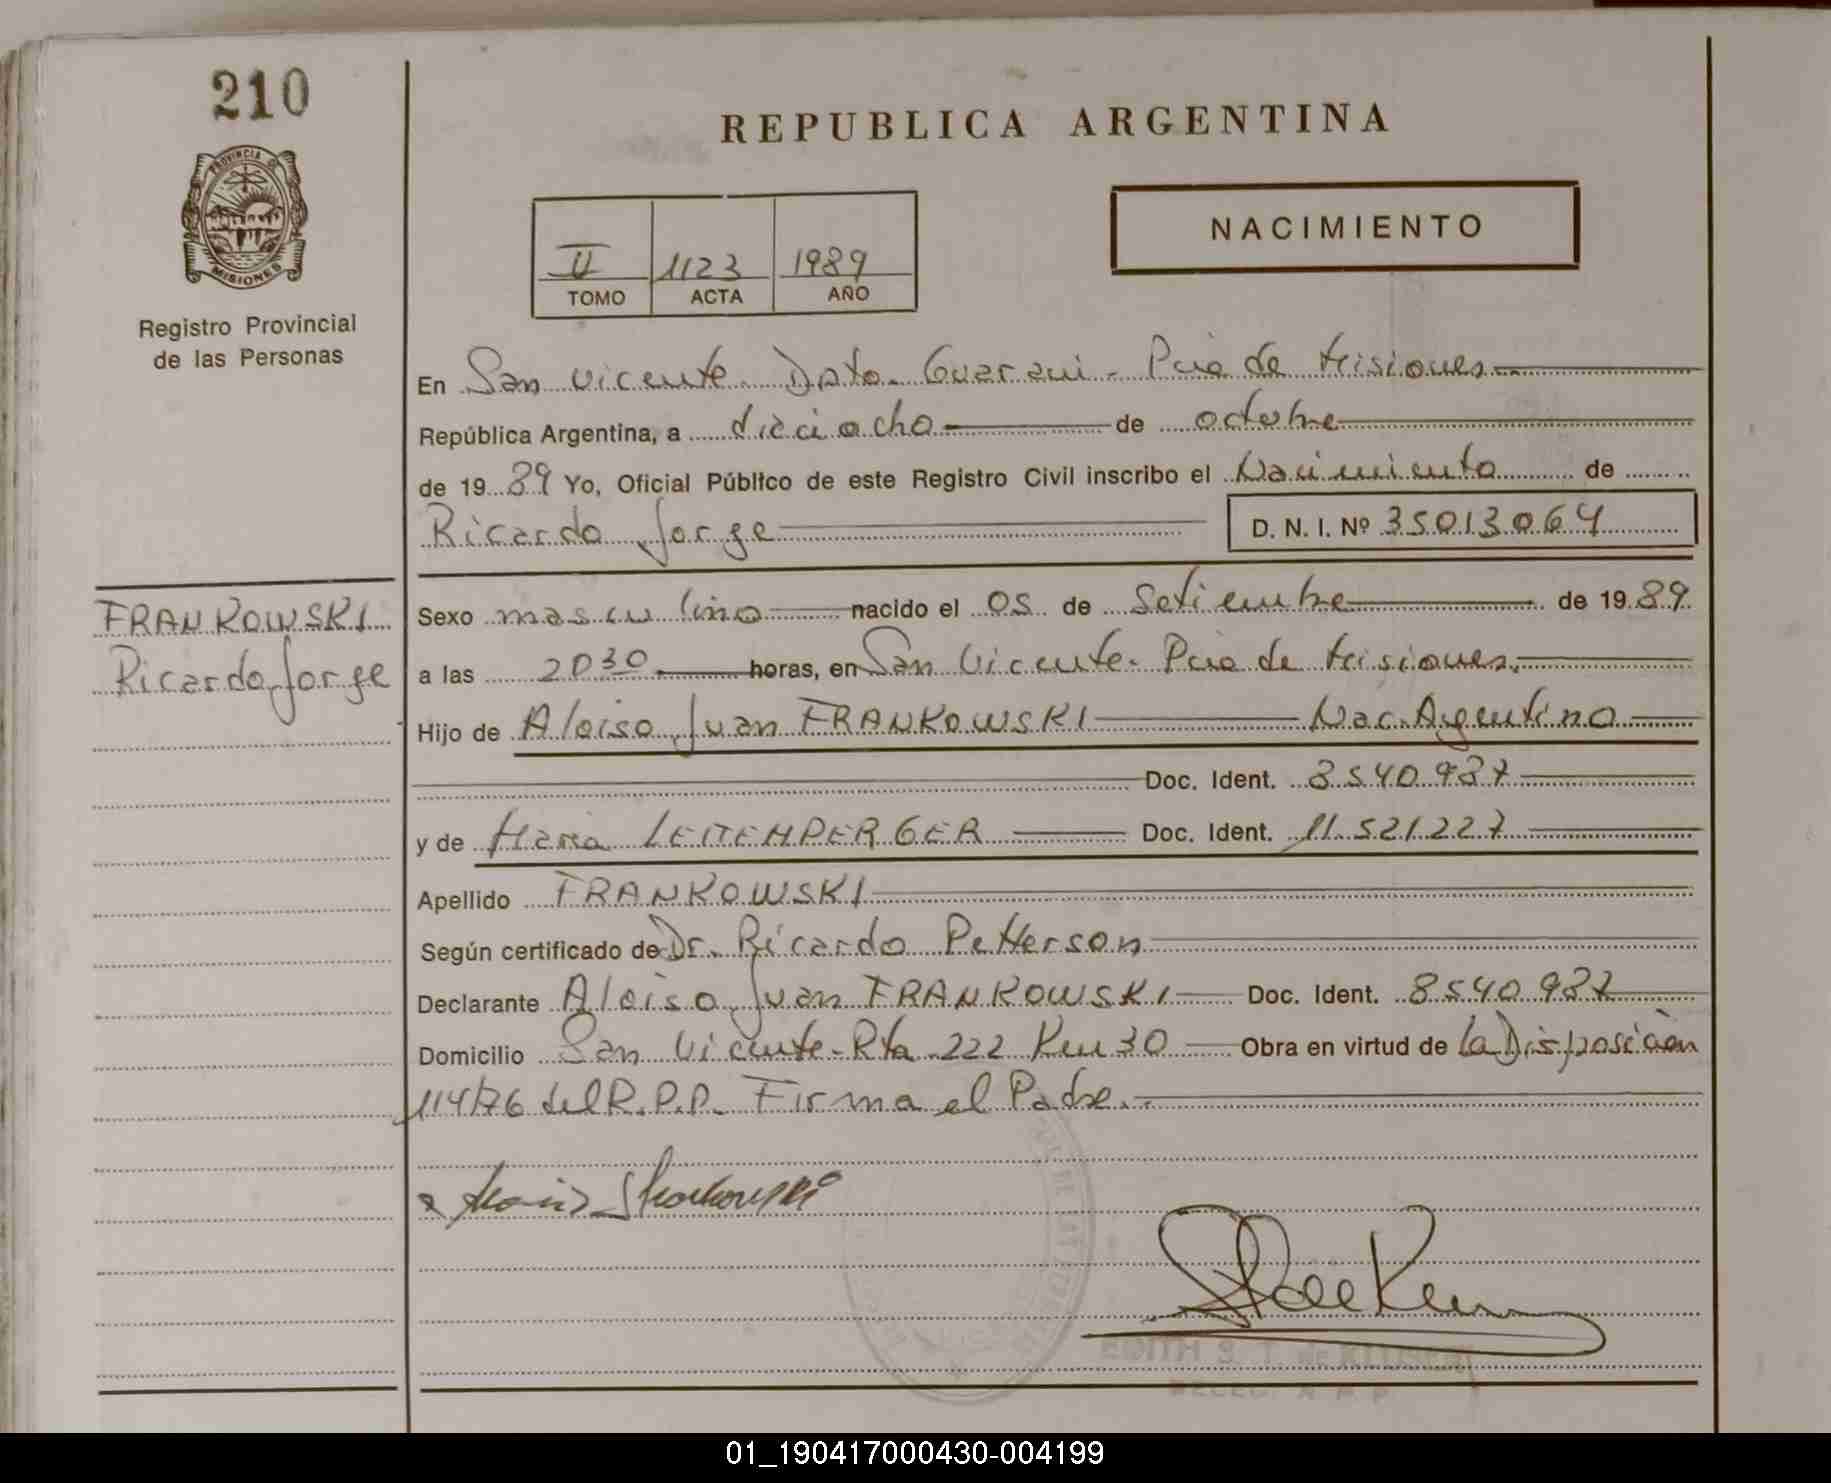 210
PROVINCIA DE
MISIONES
Registro Provincial
de las Personas
FRANKOWSKI
Ricardo Jorge
REPUBLICA ARGENTINA
II 1123 1989
TOMO ACTA AÑO
NACIMIENTO
En San Vicente Dpto. Guarani - Pcia de Misiones
República Argentina, a dieciocho de octubre
de 1989 Yo, Oficial Público de este Registro Civil inscribo el Nacimiento de
Ricardo Jorge D. N. I. Nº 35013064
Sexo masculino nacido el 05 de Setiembre de 1989
a las 2030 horas, en San Vicente - Pcia de Misiones.
Hijo de Aloiso Juan FRANKOWSKI Nac. Argentino
Doc. Ident. 8540937
y de Maria LEITEMPERGER Doc. Ident. 11.521.227
Apellido FRANKOWSKI
Según certificado de Dr. Ricardo Petterson
Declarante Aloiso Juan FRANKOWSKI Doc. Ident. 8540937
Domicilio San Vicente - Rta 222 Km 30 Obra en virtud de la Disposición
114/76 del R.P.P. Firma el Padre.
01_190417000430-004199